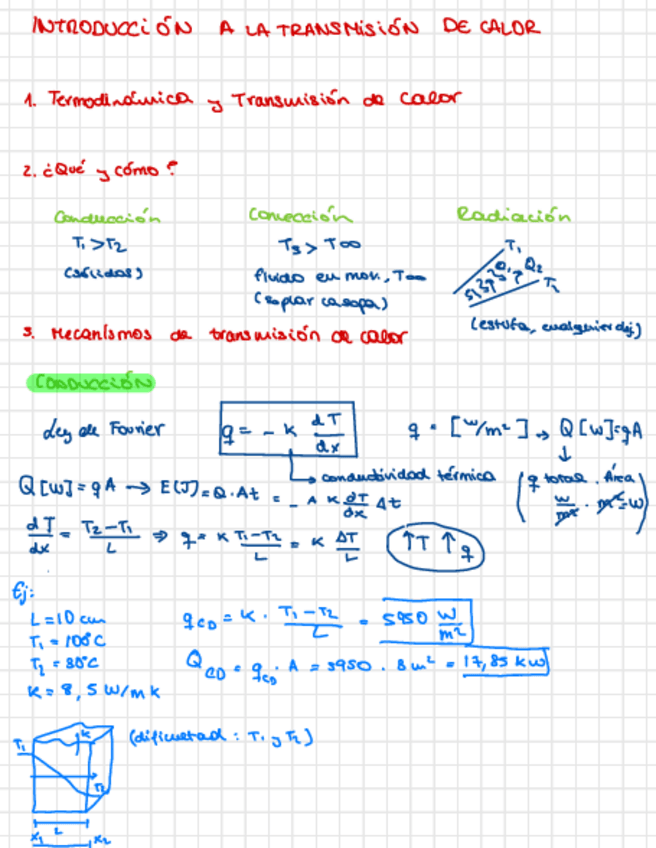 INTRODUCCIÓN A LA TRANSMISIÓN DE CALOR
1. Termodinámica y Transmisión de calor
2. ¿Qué y cómo?
Conducción
T₁ > T₂
(sólidos)
Convección
Tₛ > T∞
fluido en mov., T∞
(soplar la sopa)
Radiación
T₁
Q₂
T₂
(estufa, cualquier obj.)
3. Mecanismos de transmisión de calor
CONDUCCIÓN
Ley de Fourier q = - k dT/dx q = [W/m²] → Q [W] = qA
↳ conductividad térmica
(q total · Área
W/m² · m² = W)
Q [W] = qA → E(J) = Q · Δt = - A k dT/dx Δt
dT/dx = T₂-T₁/L ⇒ q = k T₁-T₂/L = k ΔT/L ↑T ↑q
Ej:
L = 10 cm
T₁ = 100°C
T₂ = 30°C
K = 8,5 W/mk
q_CD = k · T₁-T₂/L = 5950 W/m²
Q_CD = q_CD · A = 5950 · 3m² = 17,85 kW
(dificultad: T₁ y T₂)
T₁
k
T₂
L
x₁ x₂